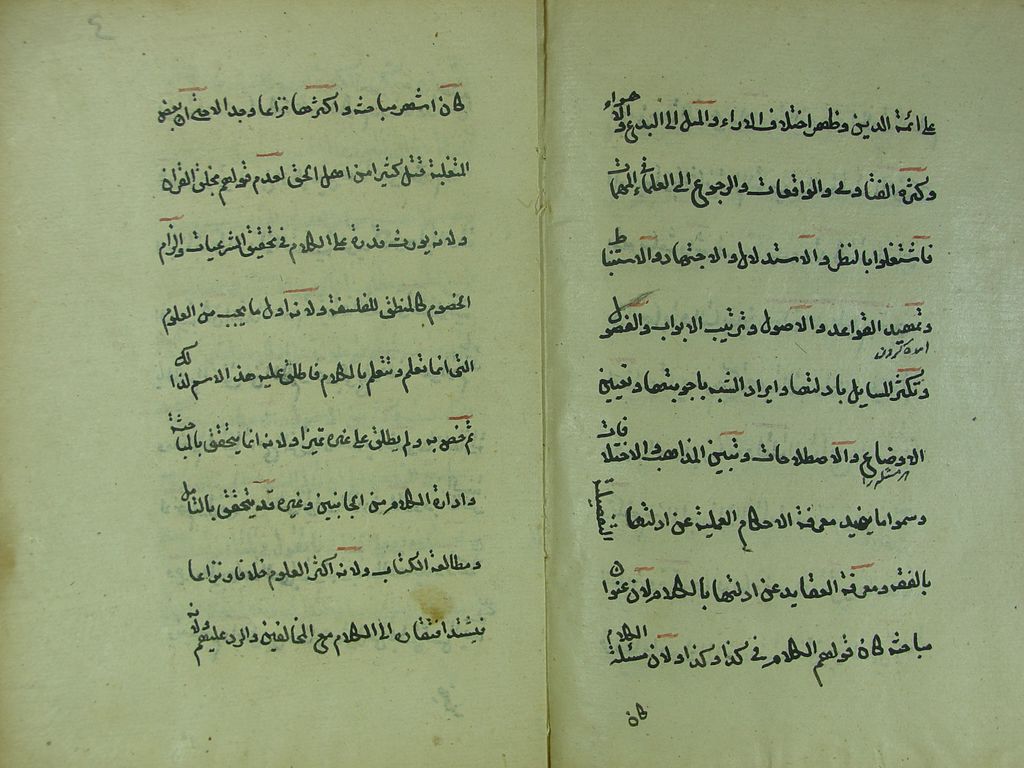 على ائمة الدين وظهر اختلاف الاراء والميل الى البدع والاهواء
وكثرة الفتاوى والواقعات والرجوع الى العلماء في المهمات
فاشتغلوا بالنظر والاستدلال والاجتهاد والاستنباط
وتمهيد القواعد والاصول وترتيب الابواب والفصول
وتكثير المسايل بادلتها وايراد الشبه باجوبتها وتعيين
الاوضاع والاصطلاحات وتبيين المذاهب والاختلافات
وسموا ما يفيد معرفة الاحكام العملية عن ادلتها التفصيلية
بالفقه ومعرفة العقايد عن ادلتها بالكلام لان عنوان
مباحثه كان قولهم الكلام في كذا وكذا ولان مسئلة الكلام
كان
٤
كان اشهر مباحثه واكثرها نزاعا وجدالا حتى ان بعض
المتغلبة قتل كثيرا من اهل الحق لعدم قولهم بخلق القران
ولانه يورث قدرة على الكلام في تحقيق الشرعيات والزام
الخصوم كالمنطق للفلسفة ولانه اول ما يجب من العلوم
التى انما تعلم وتتعلم بالكلام فاطلق عليه هذا الاسم لذلك
ثم خص به ولم يطلق على غيره تميزا ولانه انما يتحقق بالمباحثة
وادارة الكلام من الجانبين وغيره قد يتحقق بالتامل
ومطالعة الكتاب ولانه اكثر العلوم خلافا ونزاعا
فيشتد افتقاره الى الكلام مع المخالفين والرد عليهم ولانه